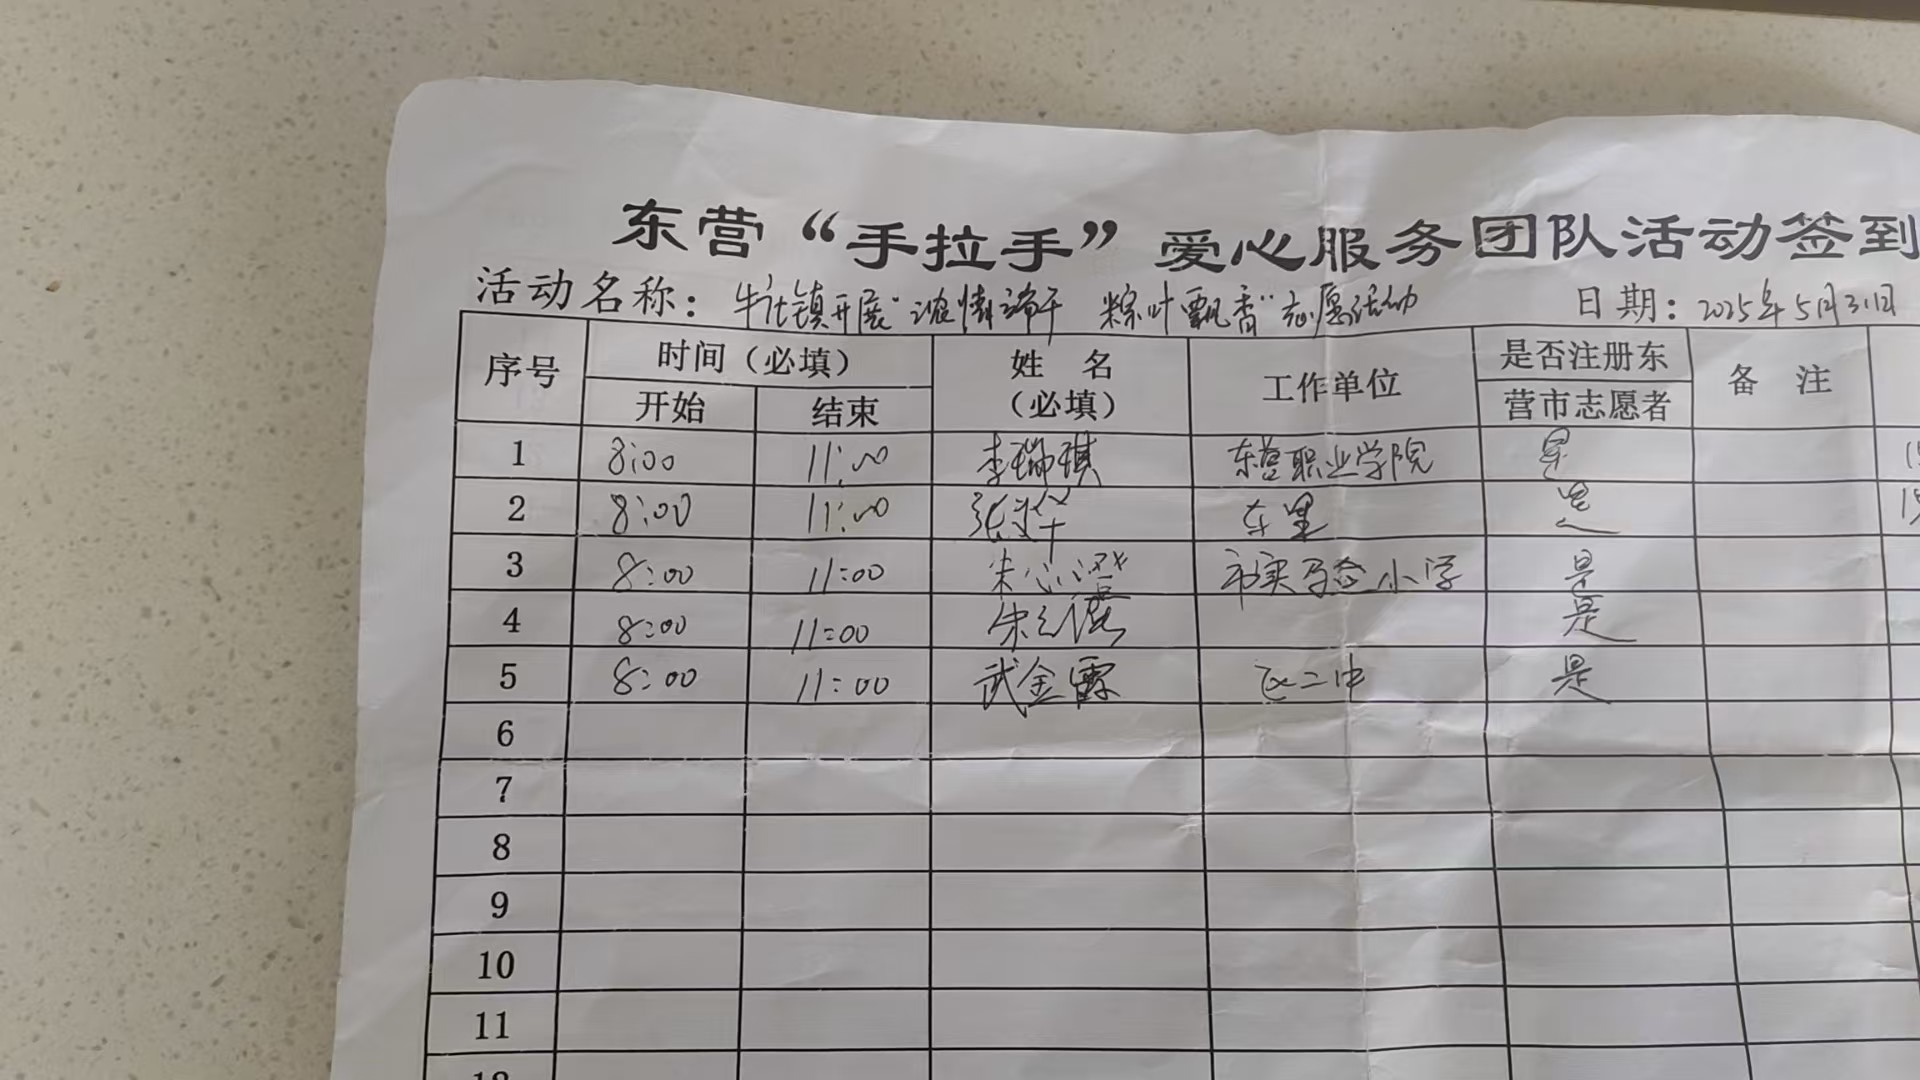 东营“手拉手”爱心服务团队活动签到
活动名称：牛庄镇开展“浓情端午 粽叶飘香”志愿活动 日期：2025年5月31日
序号 时间（必填） 姓 名 工作单位 是否注册东 备 注
开始 结束 （必填） 营市志愿者
1 8:00 11:00 李瑞琪 东营职业学院 是
2 8:00 11:00 张 是
3 8:00 11:00 朱心澄 市实验小学 是
4 8:00 11:00 朱 是
5 8:00 11:00 武金霞 区二中 是
6
7
8
9
10
11
12